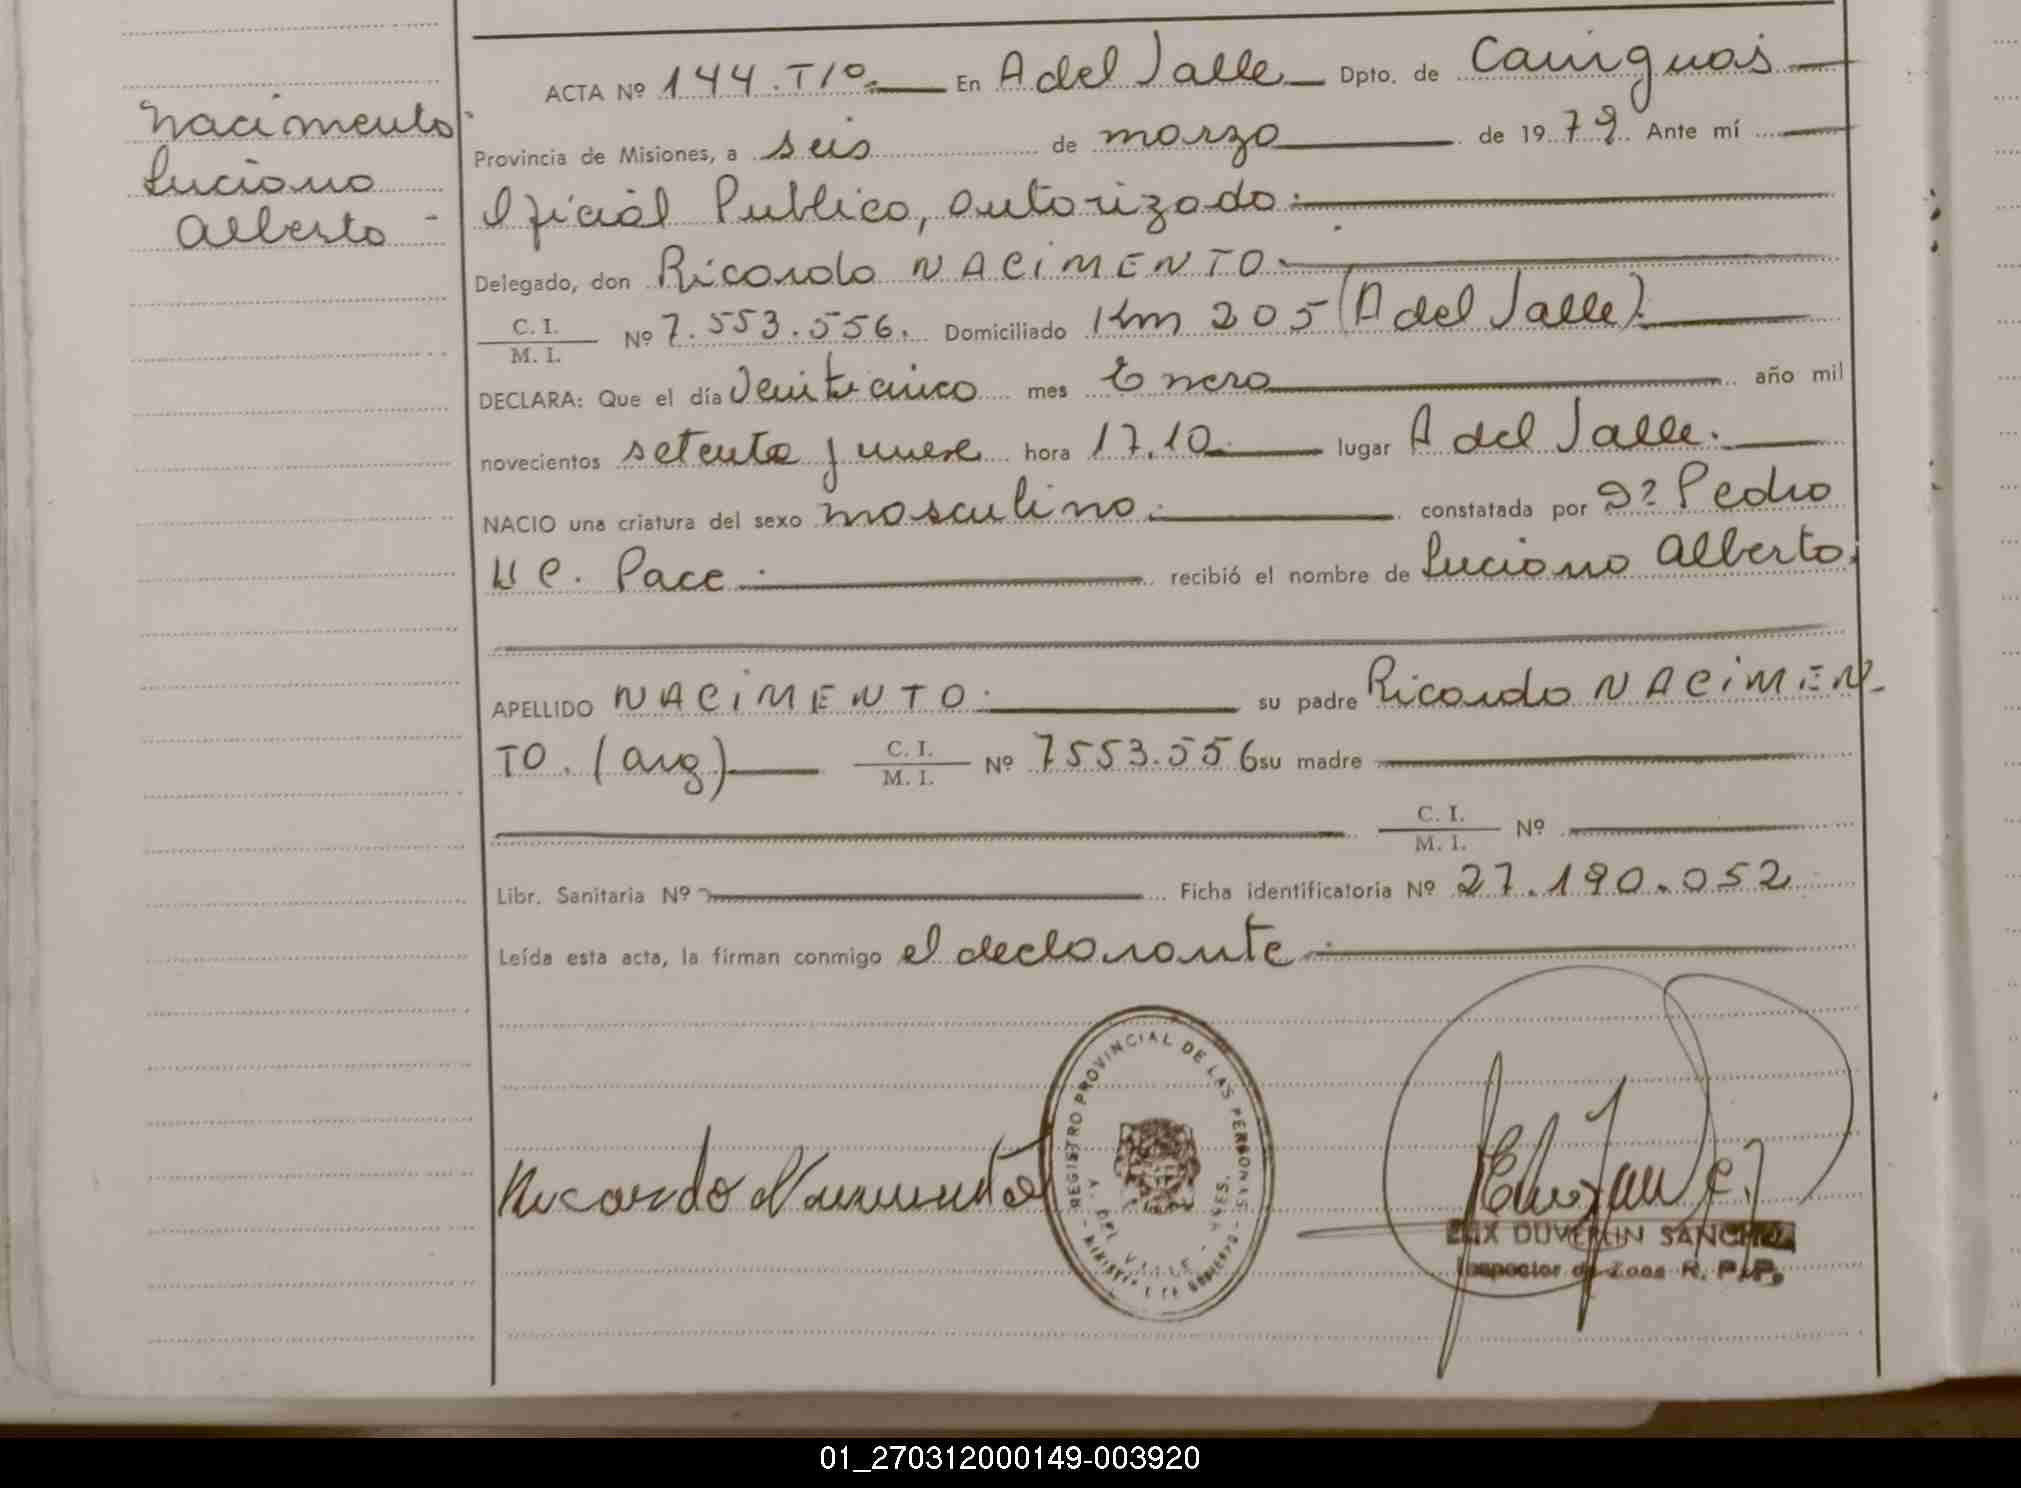 Nacimento
Luciano
Alberto -
ACTA Nº 144. T1º. En A del Valle Dpto. de Cainguas
Provincia de Misiones, a seis de marzo de 1979. Ante mí
Oficial Publico, autorizado.
Delegado, don Ricardo NACIMENTO.
C. I.
M. I. Nº 7.553.556. Domiciliado Km 205 (A del Valle).
DECLARA: Que el día Veinticinco mes Enero año mil
novecientos setenta y nueve hora 17.10. lugar A del Valle.
NACIO una criatura del sexo masculino. constatada por Dº Pedro
C. Pace. recibió el nombre de Luciano Alberto.
APELLIDO NACIMENTO. su padre Ricardo NACIMEN-
TO. (arg) C. I.
M. I. Nº 7553.556 su madre
C. I.
M. I. Nº
Libr. Sanitaria Nº Ficha identificatoria Nº 27.190.052
Leída esta acta, la firman conmigo el declarante.
Ricardo Nacimento
REGISTRO PROVINCIAL DE LAS PERSONAS
A. DEL VALLE - MNES.
MINISTERIO DE GOBIERNO
ELIX DUVERLIN SANCHEZ
Inspector de Zona R. P. P.
01_270312000149-003920